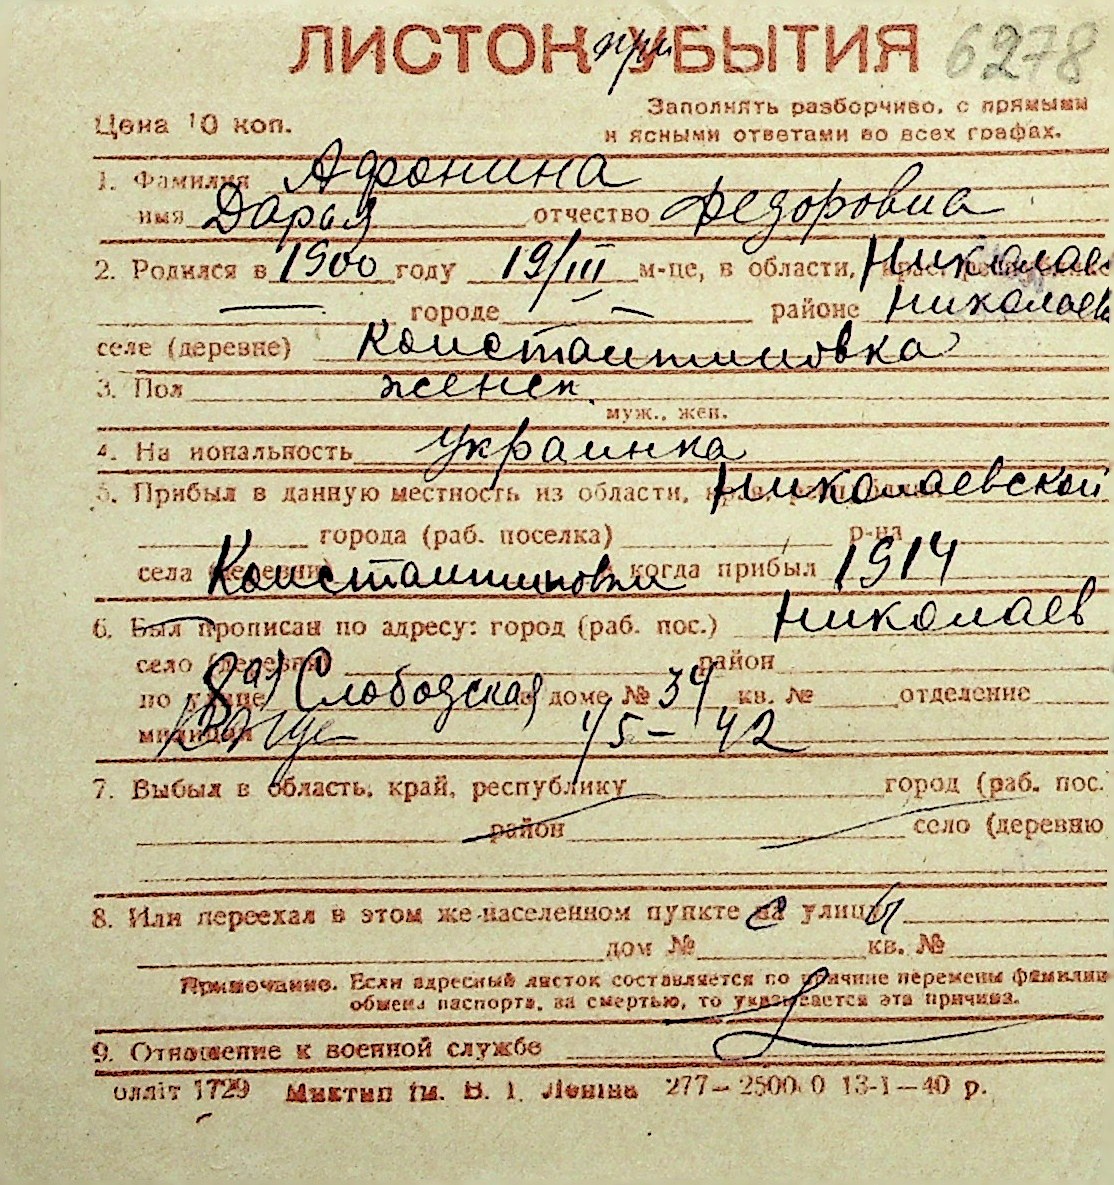 ЛИСТОК при УБЫТИЯ 6278
Цена 10 коп.
Заполнять разборчиво, с прямыми
и ясными ответами во всех графах.
1. Фамилия Афонина
имя Дарья отчество Федоровна
2. Родился в 1900 году 19/III м-це, в области, Николаев
городе — районе Николаев
селе (деревне) Константиновка
3. Пол женск.
муж., жен.
4. На иональность украинка
5. Прибыл в данную местность из области, Николаевской
города (раб. поселка) р-на
села Константиновки когда прибыл 1914
6. Был прописан по адресу: город (раб. пос.) Николаев
село (деревня) район
по улице 8ая Слободская в доме № 39 кв. № отделение
милиции 1/5 – 42
7. Выбыл в область, край, республику город (раб. пос.
район село (деревню
8. Или переехал в этом же населенном пункте с улицы
дом № кв. №
Примечание. Если адресный листок составляется по причине перемены фамилии
обмена паспорта, за смертью, то указывается эта причина.
9. Отношение к военной службе
оллiт 1729 Миктип iм. В. I. Ленiна 277–2500 0 13-1–40 р.